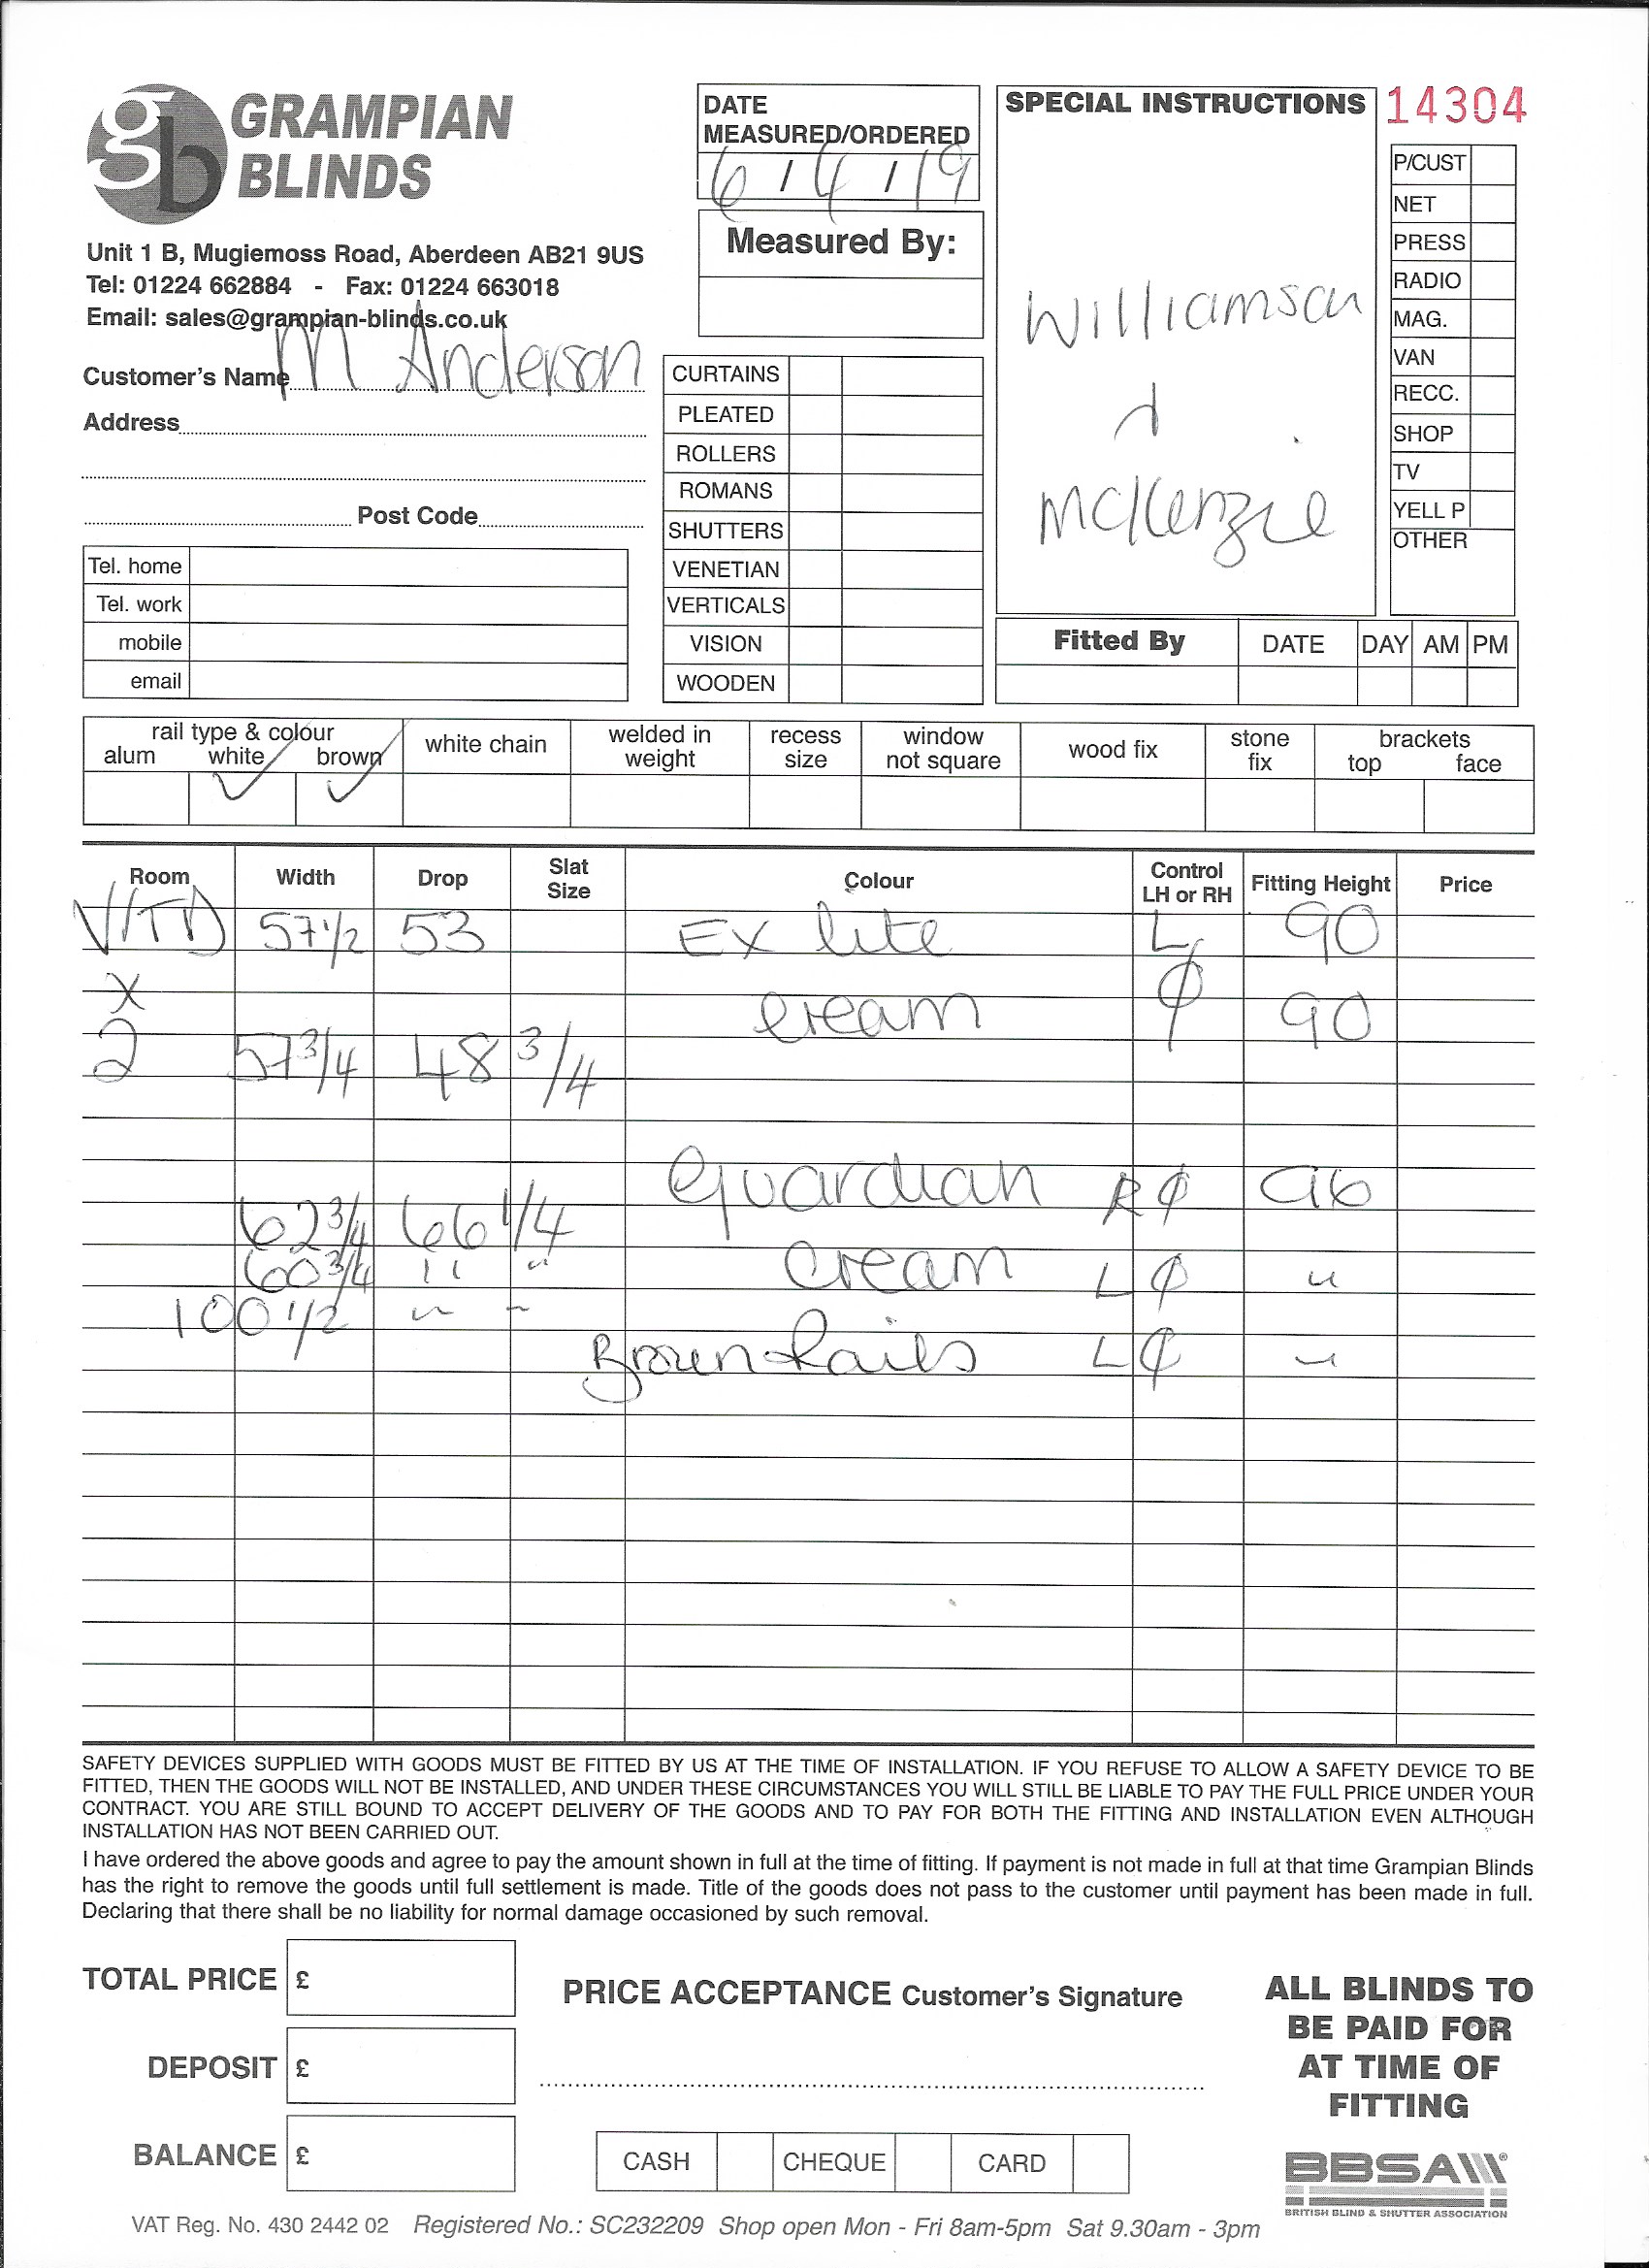 gb GRAMPIAN BLINDS
Unit 1 B, Mugiemoss Road, Aberdeen AB21 9US
Tel: 01224 662884 - Fax: 01224 663018
Email: sales@grampian-blinds.co.uk
Customer's Name M Anderson
Address
Post Code
Tel. home
Tel. work
mobile
email
DATE
MEASURED/ORDERED
6/4/19
Measured By:
CURTAINS
PLEATED
ROLLERS
ROMANS
SHUTTERS
VENETIAN
VERTICALS
VISION
WOODEN
SPECIAL INSTRUCTIONS
Williamson
&
McKenzie
14304
P/CUST
NET
PRESS
RADIO
MAG.
VAN
RECC.
SHOP
TV
YELL P
OTHER
Fitted By DATE DAY AM PM
rail type & colour
alum white brown
white chain
welded in weight
recess size
window not square
wood fix
stone fix
brackets
top face
Room Width Drop Slat Size Colour Control LH or RH Fitting Height Price
57 1/2 53 Ex lite L 90
x cream 90
2 57 3/4 48 3/4
Guardian R 96
62 3/4 66 1/4
60 3/4 " " cream L "
100 1/2 " "
Brown Rails L "
SAFETY DEVICES SUPPLIED WITH GOODS MUST BE FITTED BY US AT THE TIME OF INSTALLATION. IF YOU REFUSE TO ALLOW A SAFETY DEVICE TO BE
FITTED, THEN THE GOODS WILL NOT BE INSTALLED, AND UNDER THESE CIRCUMSTANCES YOU WILL STILL BE LIABLE TO PAY THE FULL PRICE UNDER YOUR
CONTRACT. YOU ARE STILL BOUND TO ACCEPT DELIVERY OF THE GOODS AND TO PAY FOR BOTH THE FITTING AND INSTALLATION EVEN ALTHOUGH
INSTALLATION HAS NOT BEEN CARRIED OUT.
I have ordered the above goods and agree to pay the amount shown in full at the time of fitting. If payment is not made in full at that time Grampian Blinds
has the right to remove the goods until full settlement is made. Title of the goods does not pass to the customer until payment has been made in full.
Declaring that there shall be no liability for normal damage occasioned by such removal.
TOTAL PRICE £
DEPOSIT £
BALANCE £
PRICE ACCEPTANCE Customer's Signature
CASH CHEQUE CARD
ALL BLINDS TO
BE PAID FOR
AT TIME OF
FITTING
BBSA
BRITISH BLIND & SHUTTER ASSOCIATION
VAT Reg. No. 430 2442 02 Registered No.: SC232209 Shop open Mon - Fri 8am-5pm Sat 9.30am - 3pm